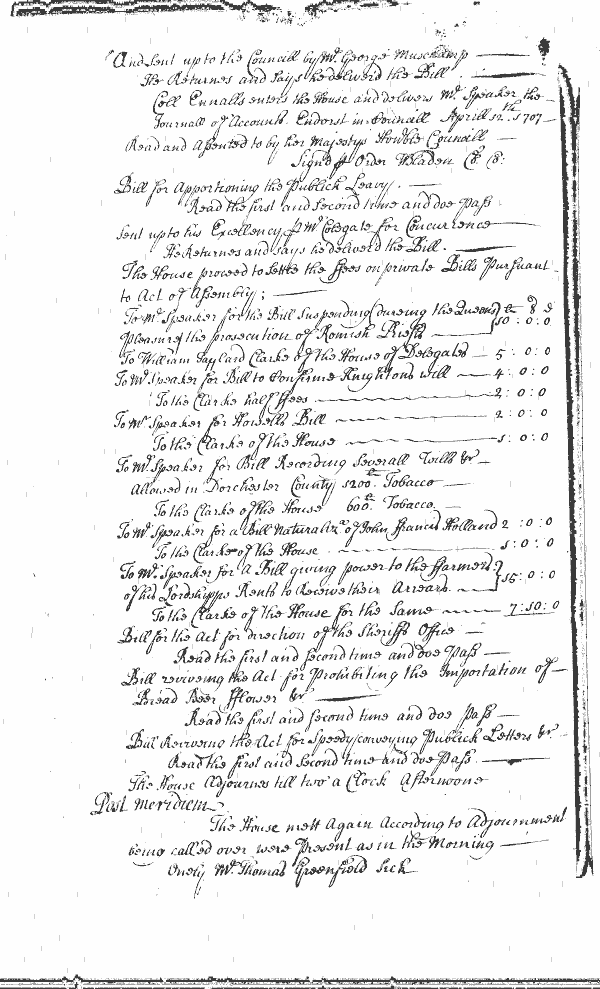 And sent up to the Councill by Mr. George Muschamp
He Returnes and says he deliverd the Bill
Coll Ennalls enters the House and delivers Mr. Speaker the
Journall of Accounts Endorst in Councill Aprill 12th. 1707
Read and Assented to by her Majestys Honble Councill
Signd p Order WBladen Cl: C:
Bill for Apportioning the Publick Leavy.
Read the first and second time and doe Pass
Sent up to his Excellency p Mr Colegate for Concurrence
He Returnes and says he deliverd the Bill.
The House proceed to settle the ffees on private Bills Pursuant
to Act of Assembly;
To Mr. Speaker for the Bill Suspending dureing the Queens £ s d
pleasure the prosecution of Romish Priests 10:0:0
To William Taylard Clarke of the House of Delegates 5:0:0
To Mr Speaker for Bill to Confirme Knightons will 4:0:0
To the Clarke half ffees 2:0:0
To Mr Speaker for Howells Bill 2:0:0
To the Clarke of the House 1:0:0
To Mr. Speaker for Bill Recording Severall Wills &c
Allowed in Dorchester County 1200lb. Tobacco
To the Clarke of the House 600lb. Tobacco
To Mr Speaker for a Bill Naturaliz.n of John Francis Holland 2:0:0
To the Clarke of the House 1:0:0
To Mr. Speaker for a Bill giving power to the ffarmers
of his Lordshipps Rents to Receive their Arrears 15:0:0
To the Clarke of the House for the same 7:10:0
Bill for the Act for direction of the Sheriffs Office
Read the first and second time and doe Pass
Bill reviveing the Act for Prohibiting the Importation of
Bread Beer fflower &c
Read the first and second time and doe Pass
Bill Reviveing the Act for Speedy conveying Publick Letters &c.
Read the first and second time and doe Pass
The House Adjournes till two a Clock Afternoone
Post Meridiem
The House mett Again According to Adjournment
being called over were Present as in the Morning
Onely Mr. Thomas Greenfield Sick